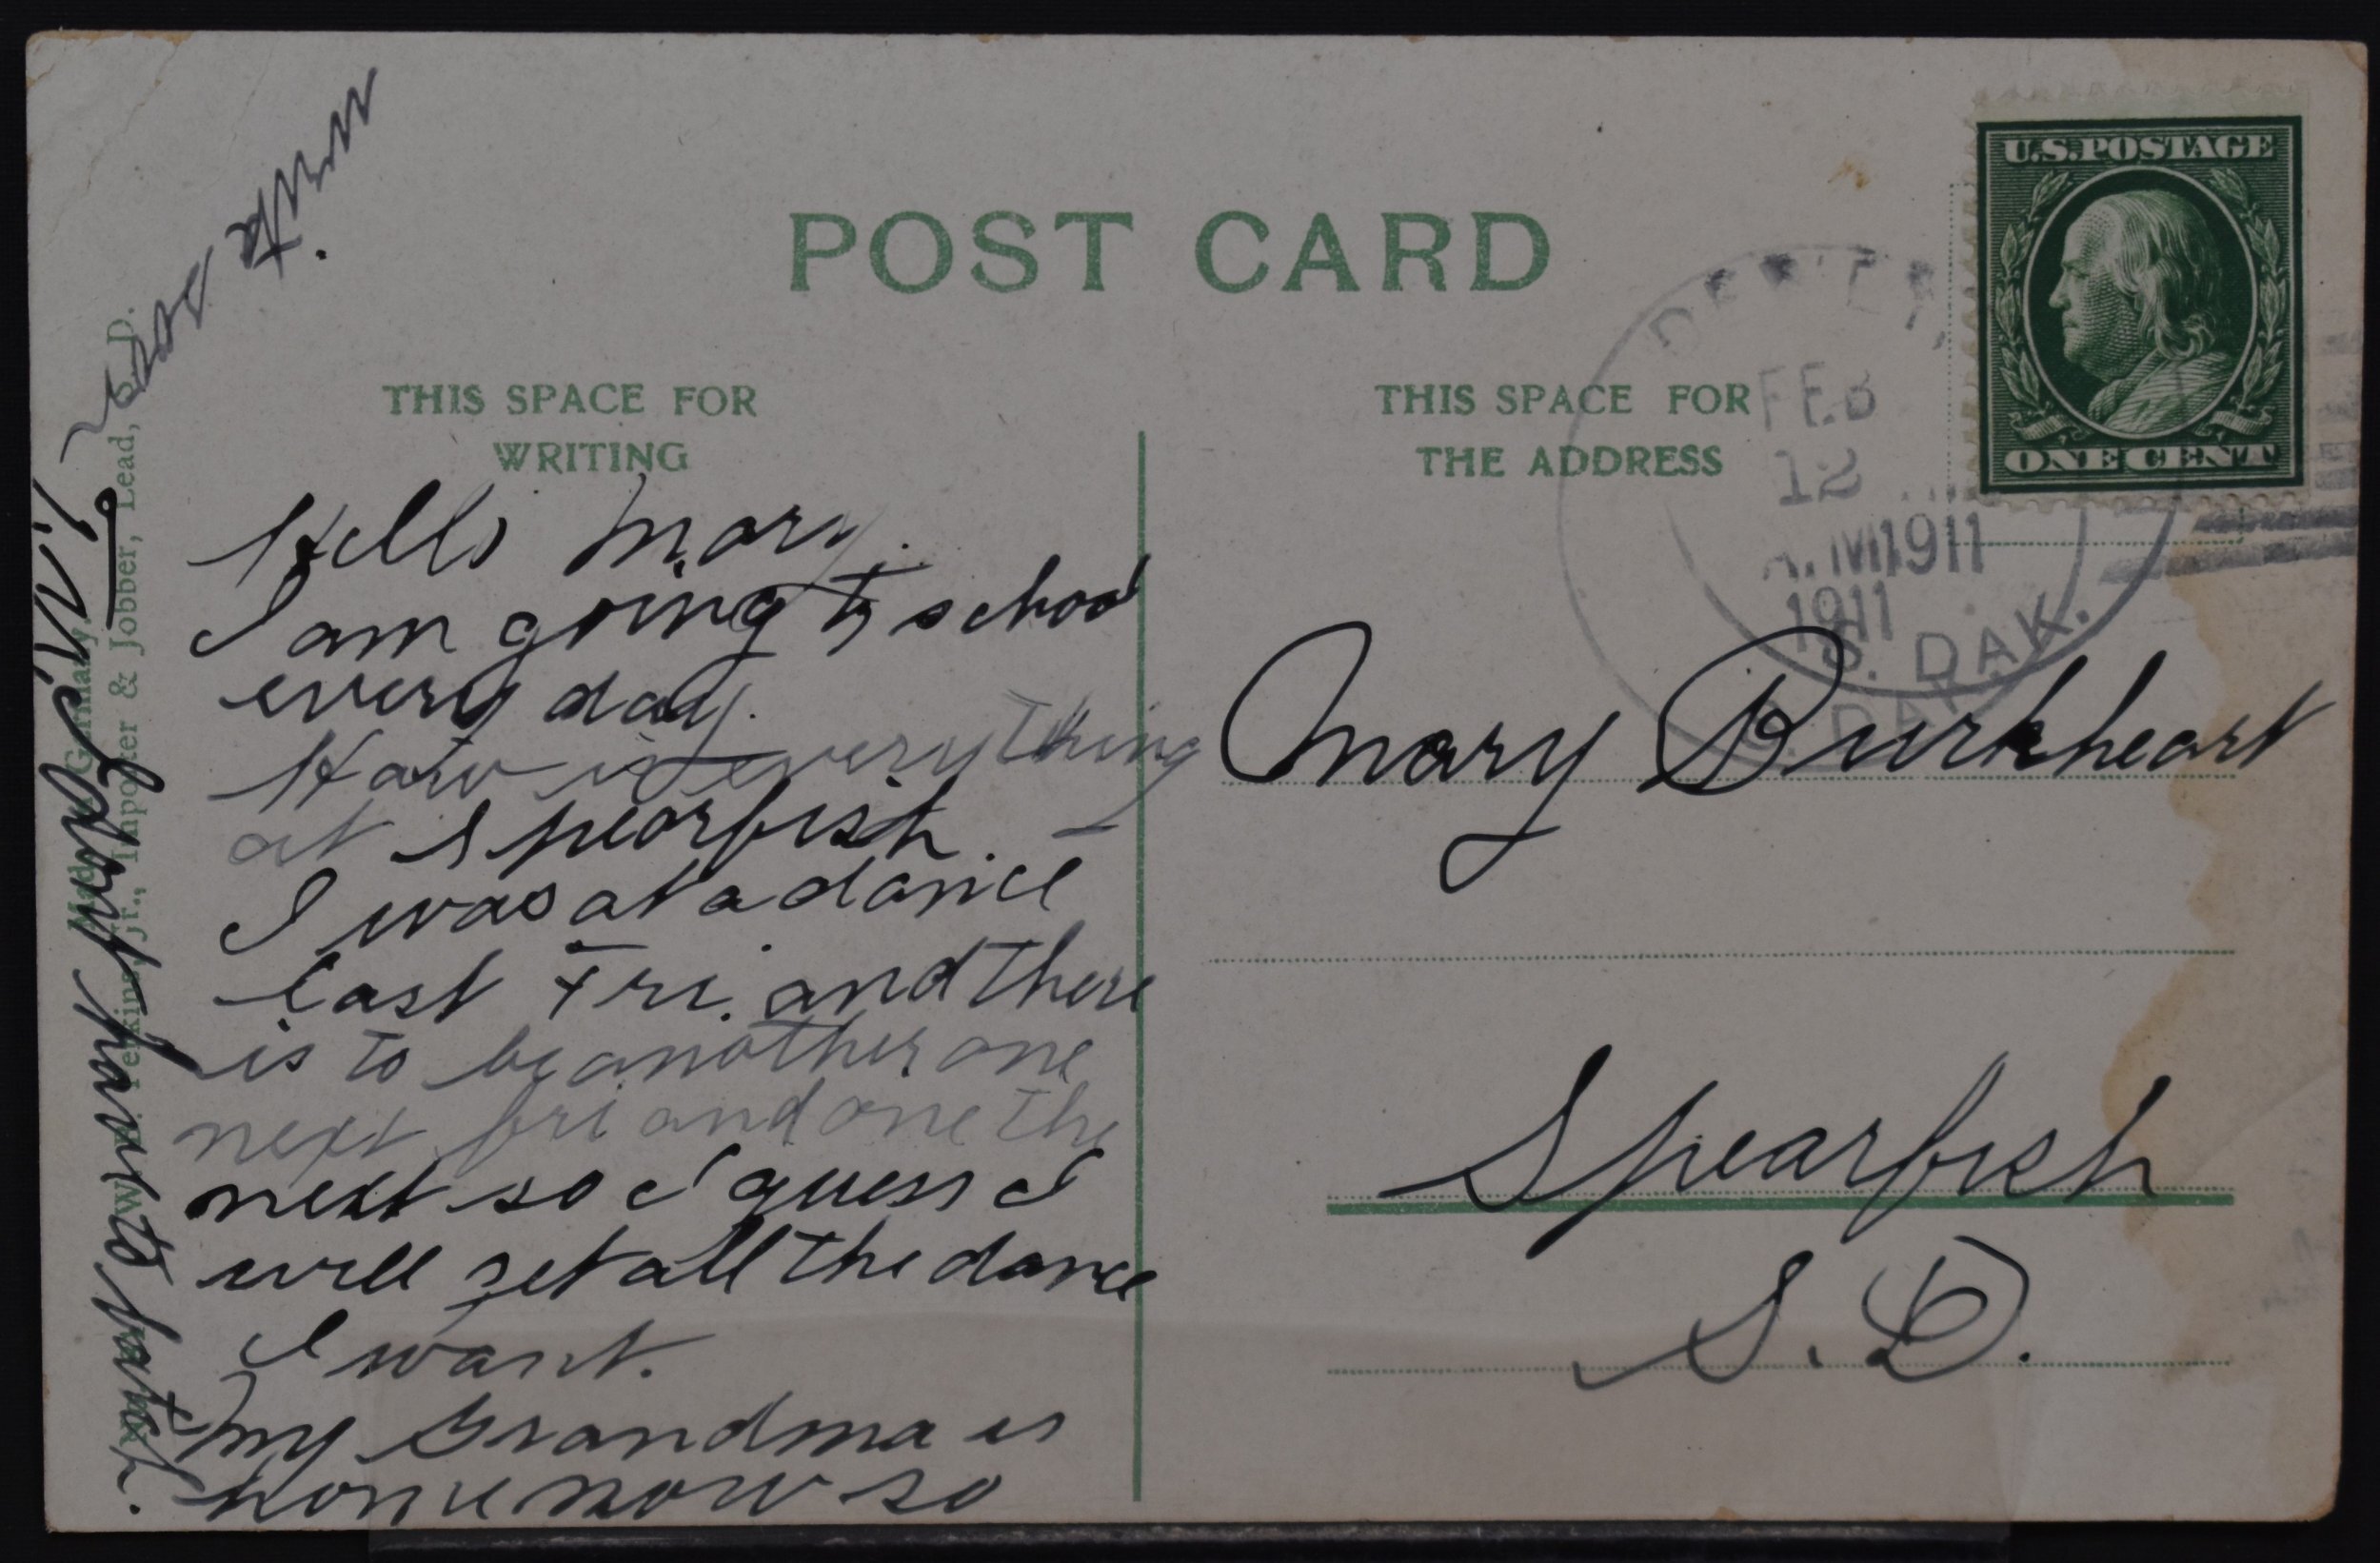 POST CARD
THIS SPACE FOR
WRITING
THIS SPACE FOR
THE ADDRESS
U.S.POSTAGE
ONE CENT
FEB
12
A.M 1911
1911
S. DAK.
S. DAK
Hello Mary.
I am going to school
every day.
How is everything
at Spearfish.
I was at a dance
last Fri. and there
is to be another one
next fri and one the
next so I guess I
will get all the dance
I want.
My Grandma is
home now so
I don't have to batch.
write soon
Mary Burkheart
Spearfish
S. D.
Made Germany.
W. Perkins, Jr., Importer & Jobber, Lead, S. D.